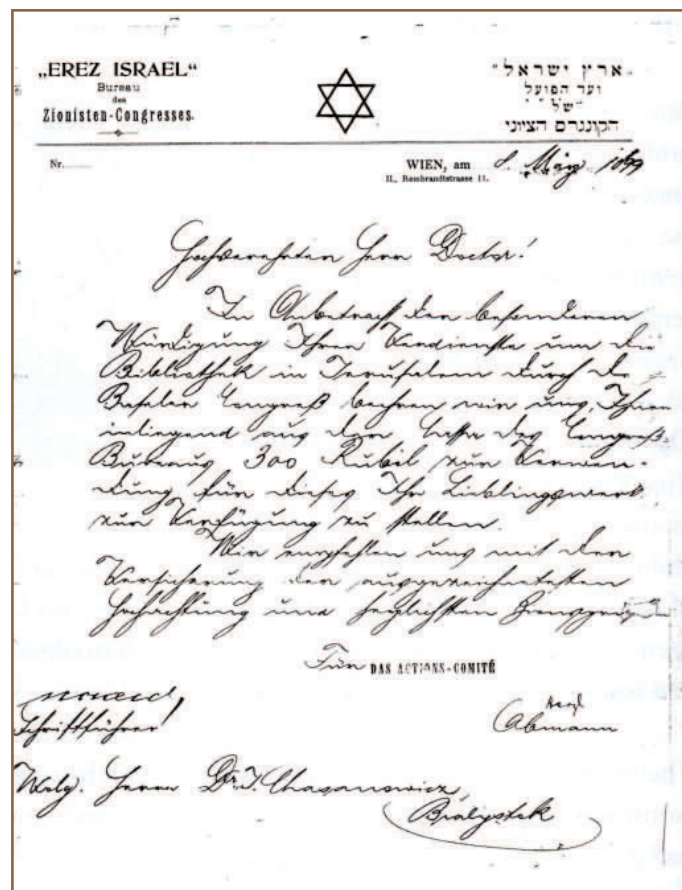 „EREZ ISRAEL“
Bureau
des
Zionisten-Congresses.
"ארץ ישראל"
ועד הפועל
"של"
הקונגרס הציוני
Nr.
WIEN, am 8. März 1899
II., Rembrandtstrasse 11.
Hochverehrten Herrn Doctor!
In Anbetracht der besonderen
Würdigung Ihrer Verdienste um die
Bibliothek in Jerusalem durch de
Baseler Congreß beehren wir uns, Ihnen
inliegend aus der Cassa des Congreß-
Bureaus 300 Rubel zur Verwen-
dung für dieses Ihr Lieblingswerk
zur Verfügung zu stellen.
Wir empfehlen uns mit der
Versicherung der ausgezeichnetesten
Hochachtung und herzlichsten
Für DAS ACTIONS-COMITÉ
Schriftführer
Herrn Dr. J. Chasanowicz,
Bialystok